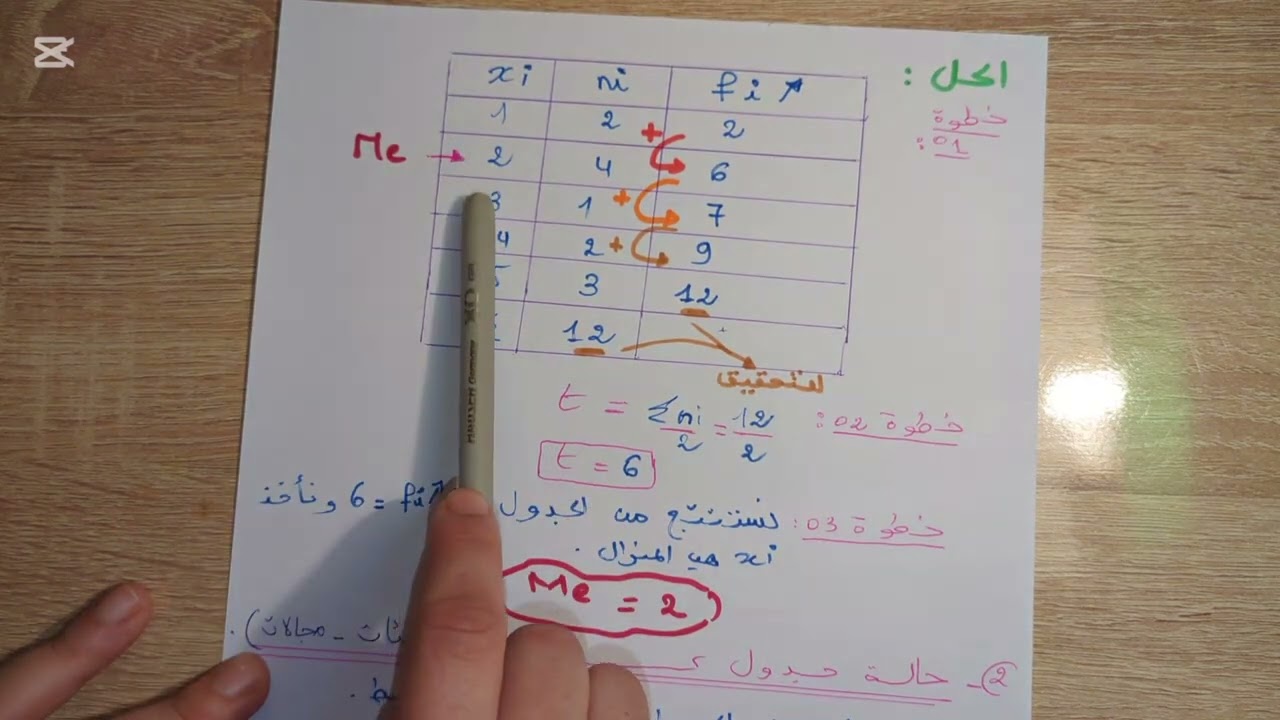 الحل :
خطوة
01 :
xi ni fi ↗
1 2 + 2
Me → 2 4 6
3 1 + 7
4 2 + 9
5 3 12
12
للتحقيق
خطوة 02 : t = Σni/2 = 12/2
t = 6
خطوة 03 : نستنتج من الجدول fi↗ = 6 ونأخذ
xi هي المنوال .
Me = 2
2)- حالة جدول مجالات) .